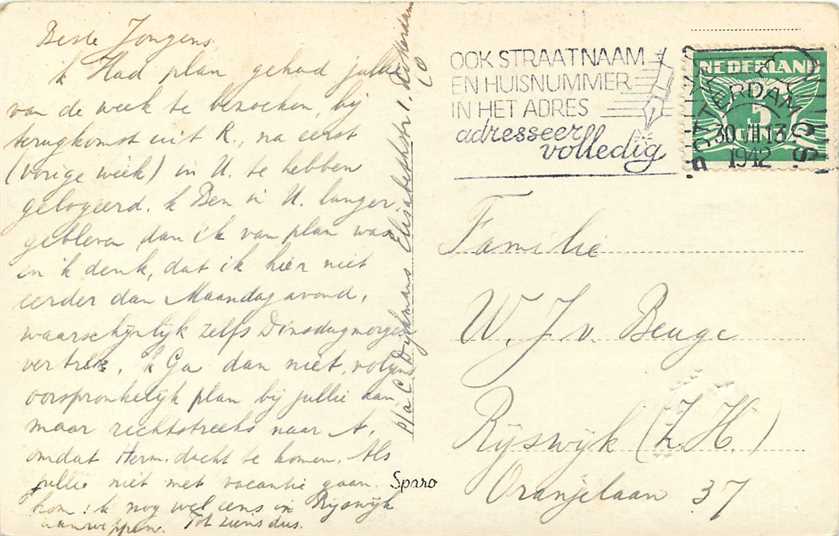 Beste Jongens,
Ik Had plan gehad jullie
van de week te bezoeken, bij
terugkomst uit R., na eerst
(vorige week) in U. te hebben
gelogeerd. Ik Ben in U. langer
gebleven dan ik van plan was
en ik denk, dat ik hier niet
eerder dan Maandag avond,
waarschijnlijk zelfs Dinsdagmorgen
vertrek. Ik Ga dan niet, volgens
oorspronkelijk plan bij jullie aan
maar rechtstreeks naar A.
omdat dacht te komen. Als
jullie niet met vacantie gaan
kom ik nog wel eens in Rijswijk
aanwippen. Tot ziens dus.
p/a C. Dijkmans Elisabethstr. 1. Rotterdam
Sparo
OOK STRAATNAAM
EN HUISNUMMER
IN HET ADRES
adresseer
volledig
NEDERLAND
ROTTERDAM
30 VII 13
1942
Familie
W. J. v. Beuge
Rijswijk (Z.H.)
Oranjelaan 37